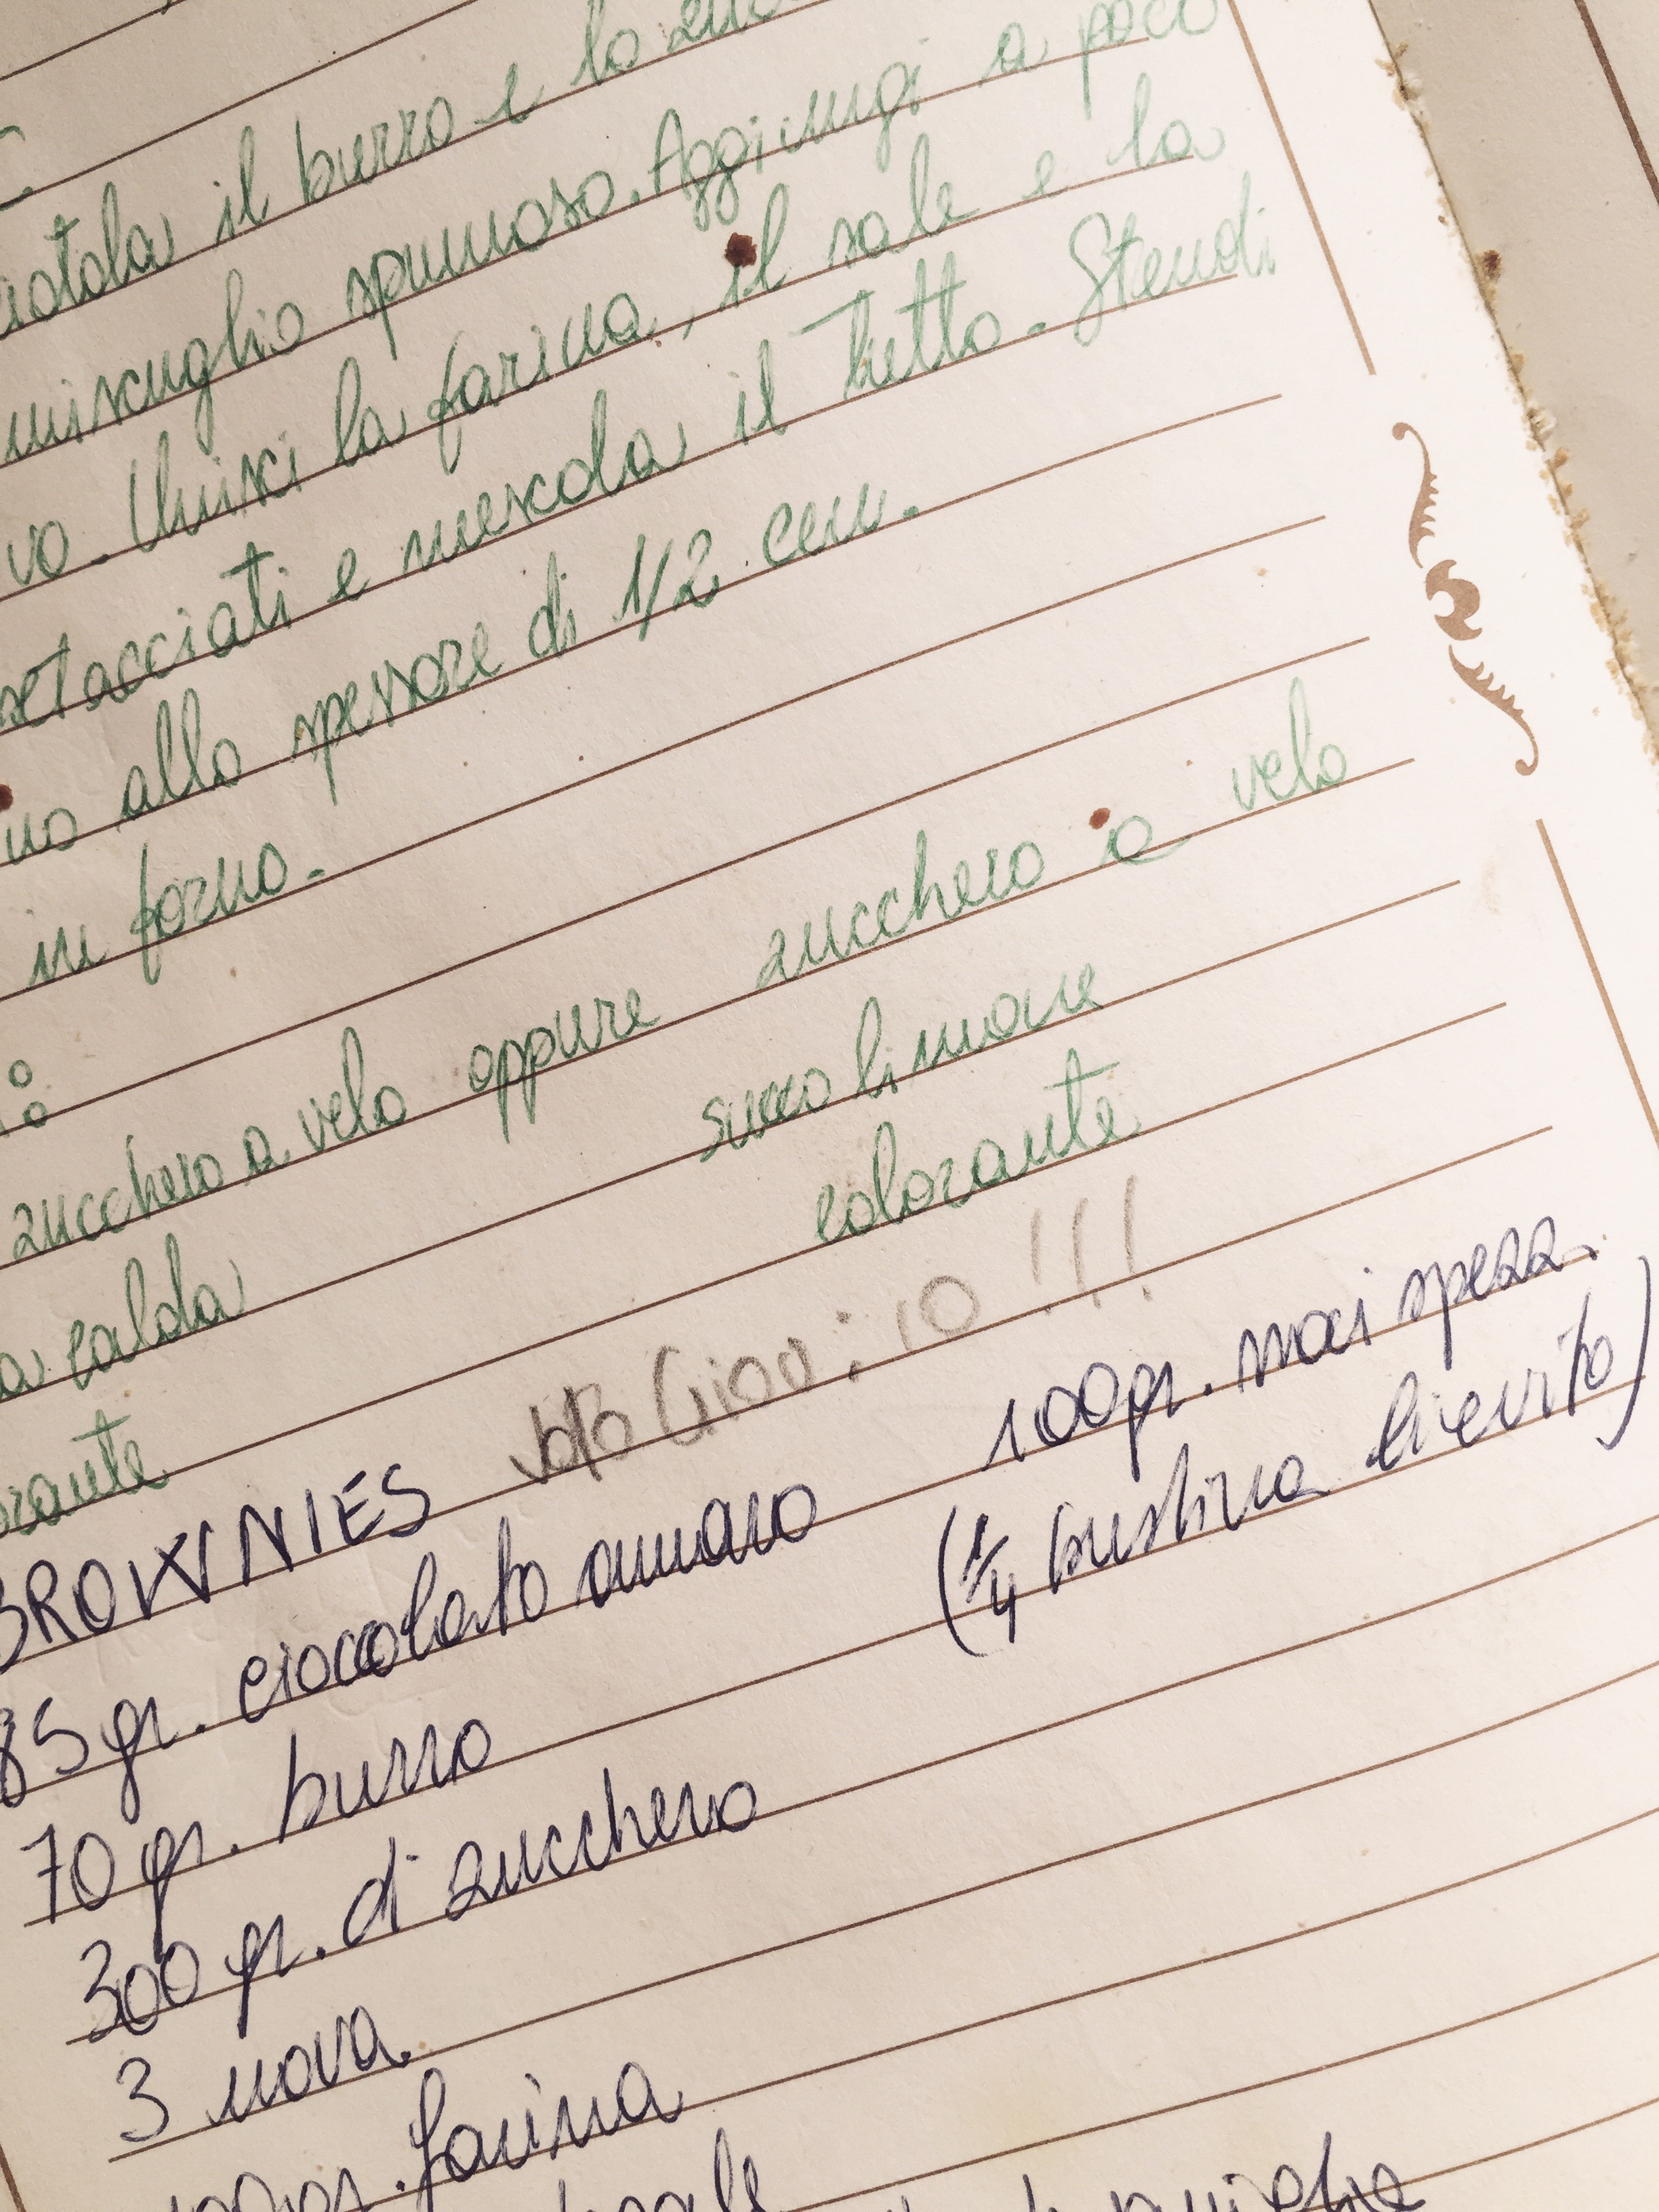 il burro e lo
miscuglio spumoso. Aggiungi a poco
vo. Unisci la farina, il sale e la
setacciati e mescola il tutto. Stendi
no allo spessore di 1/2 cm.
in forno.
zucchero a velo oppure zucchero a velo
a calda succo limone
colorante
BROWNIES voto Giov: 10!!!
85 gr. cioccolato amaro 100 gr. noci spezz.
70 gr. burro (1/4 bustina lievito)
300 gr. di zucchero
3 uova.
farina